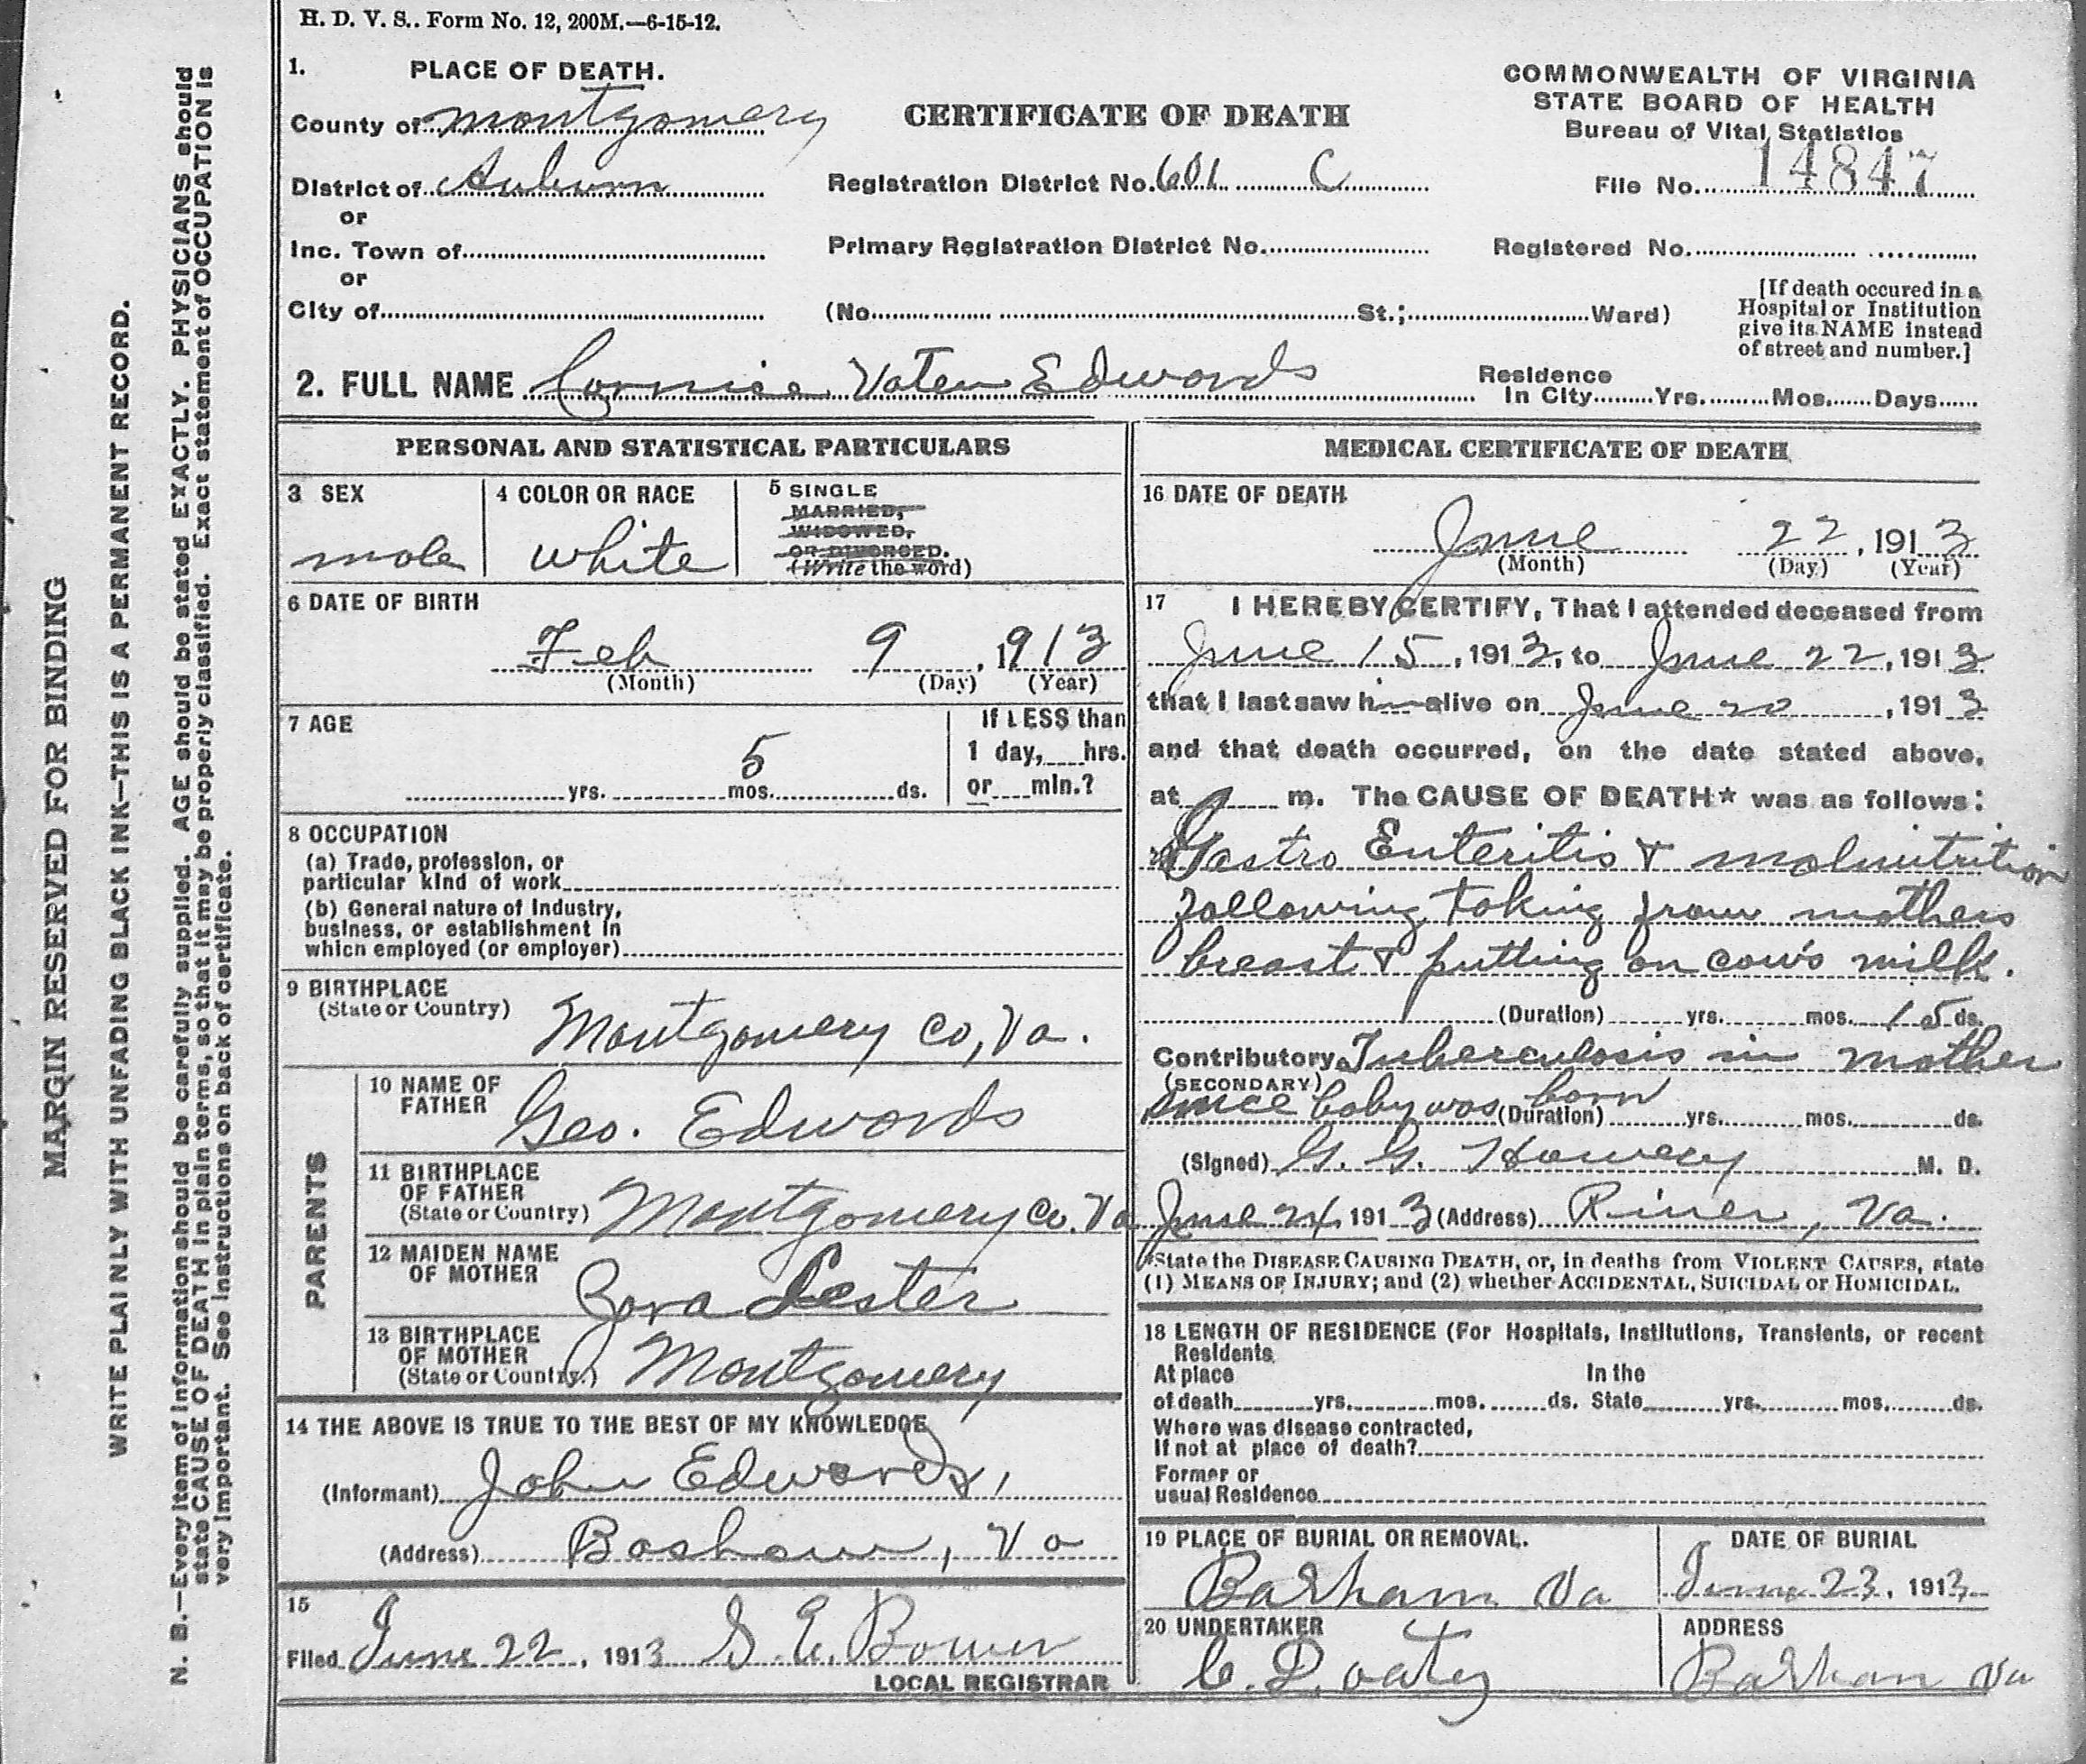 H. D. V. S.. Form No. 12, 200M.—6-15-12.
1. PLACE OF DEATH.
County of Montgomery
District of Auburn
or
Inc. Town of
or
City of
CERTIFICATE OF DEATH
Registration District No. 601 C
Primary Registration District No.
(No. St.; Ward)
COMMONWEALTH OF VIRGINIA
STATE BOARD OF HEALTH
Bureau of Vital Statistics
File No. 14847
Registered No.
[If death occured in a
Hospital or Institution
give its NAME instead
of street and number.]
2. FULL NAME Edwards
Residence
In City Yrs. Mos. Days
PERSONAL AND STATISTICAL PARTICULARS
3 SEX
male
4 COLOR OR RACE
white
5 SINGLE
MARRIED,
WIDOWED,
OR DIVORCED.
(Write the word)
6 DATE OF BIRTH
Feb 9, 1913
(Month) (Day) (Year)
7 AGE
5
yrs. mos. ds.
If LESS than
1 day, hrs.
or min.?
8 OCCUPATION
(a) Trade, profession, or
particular kind of work
(b) General nature of Industry,
business, or establishment in
which employed (or employer)
9 BIRTHPLACE
(State or Country)
Montgomery Co, Va.
PARENTS
10 NAME OF
FATHER
Geo. Edwards
11 BIRTHPLACE
OF FATHER
(State or Country) Montgomery Co. Va
12 MAIDEN NAME
OF MOTHER
Lester
13 BIRTHPLACE
OF MOTHER
(State or Country.) Montgomery
14 THE ABOVE IS TRUE TO THE BEST OF MY KNOWLEDGE
(Informant) John Edwards,
(Address) Va
15
Filed June 22, 1913 S. E. Bower
LOCAL REGISTRAR
MEDICAL CERTIFICATE OF DEATH
16 DATE OF DEATH
June 22, 1913
(Month) (Day) (Year)
17 I HEREBY CERTIFY, That I attended deceased from
June 15, 1913, to June 22, 1913
that I last saw him alive on June 20, 1913
and that death occurred, on the date stated above,
at m. The CAUSE OF DEATH* was as follows:
Gastro Enteritis & malnutrition
following taking from mothers
breast & putting on cow's milk.
(Duration) yrs. mos. 15 ds.
Contributory Tuberculosis in mother
(SECONDARY)
since baby was born
(Duration) yrs. mos. ds.
(Signed) G. G. Howery M. D.
June 24 1913 (Address) Riner, Va.
*State the DISEASE CAUSING DEATH, or, in deaths from VIOLENT CAUSES, state
(1) MEANS OF INJURY; and (2) whether ACCIDENTAL, SUICIDAL or HOMICIDAL.
18 LENGTH OF RESIDENCE (For Hospitals, Institutions, Transients, or recent
Residents.
At place In the
of death yrs. mos. ds. State yrs. mos. ds.
Where was disease contracted,
If not at place of death?
Former or
usual Residence
19 PLACE OF BURIAL OR REMOVAL.
Va
DATE OF BURIAL
June 23, 1913
20 UNDERTAKER
C. D.
ADDRESS
Va
MARGIN RESERVED FOR BINDING
WRITE PLAINLY WITH UNFADING BLACK INK—THIS IS A PERMANENT RECORD.
N. B.—Every item of information should be carefully supplied. AGE should be stated EXACTLY. PHYSICIANS should
state CAUSE OF DEATH in plain terms, so that it may be properly classified. Exact statement of OCCUPATION is
very important. See instructions on back of certificate.